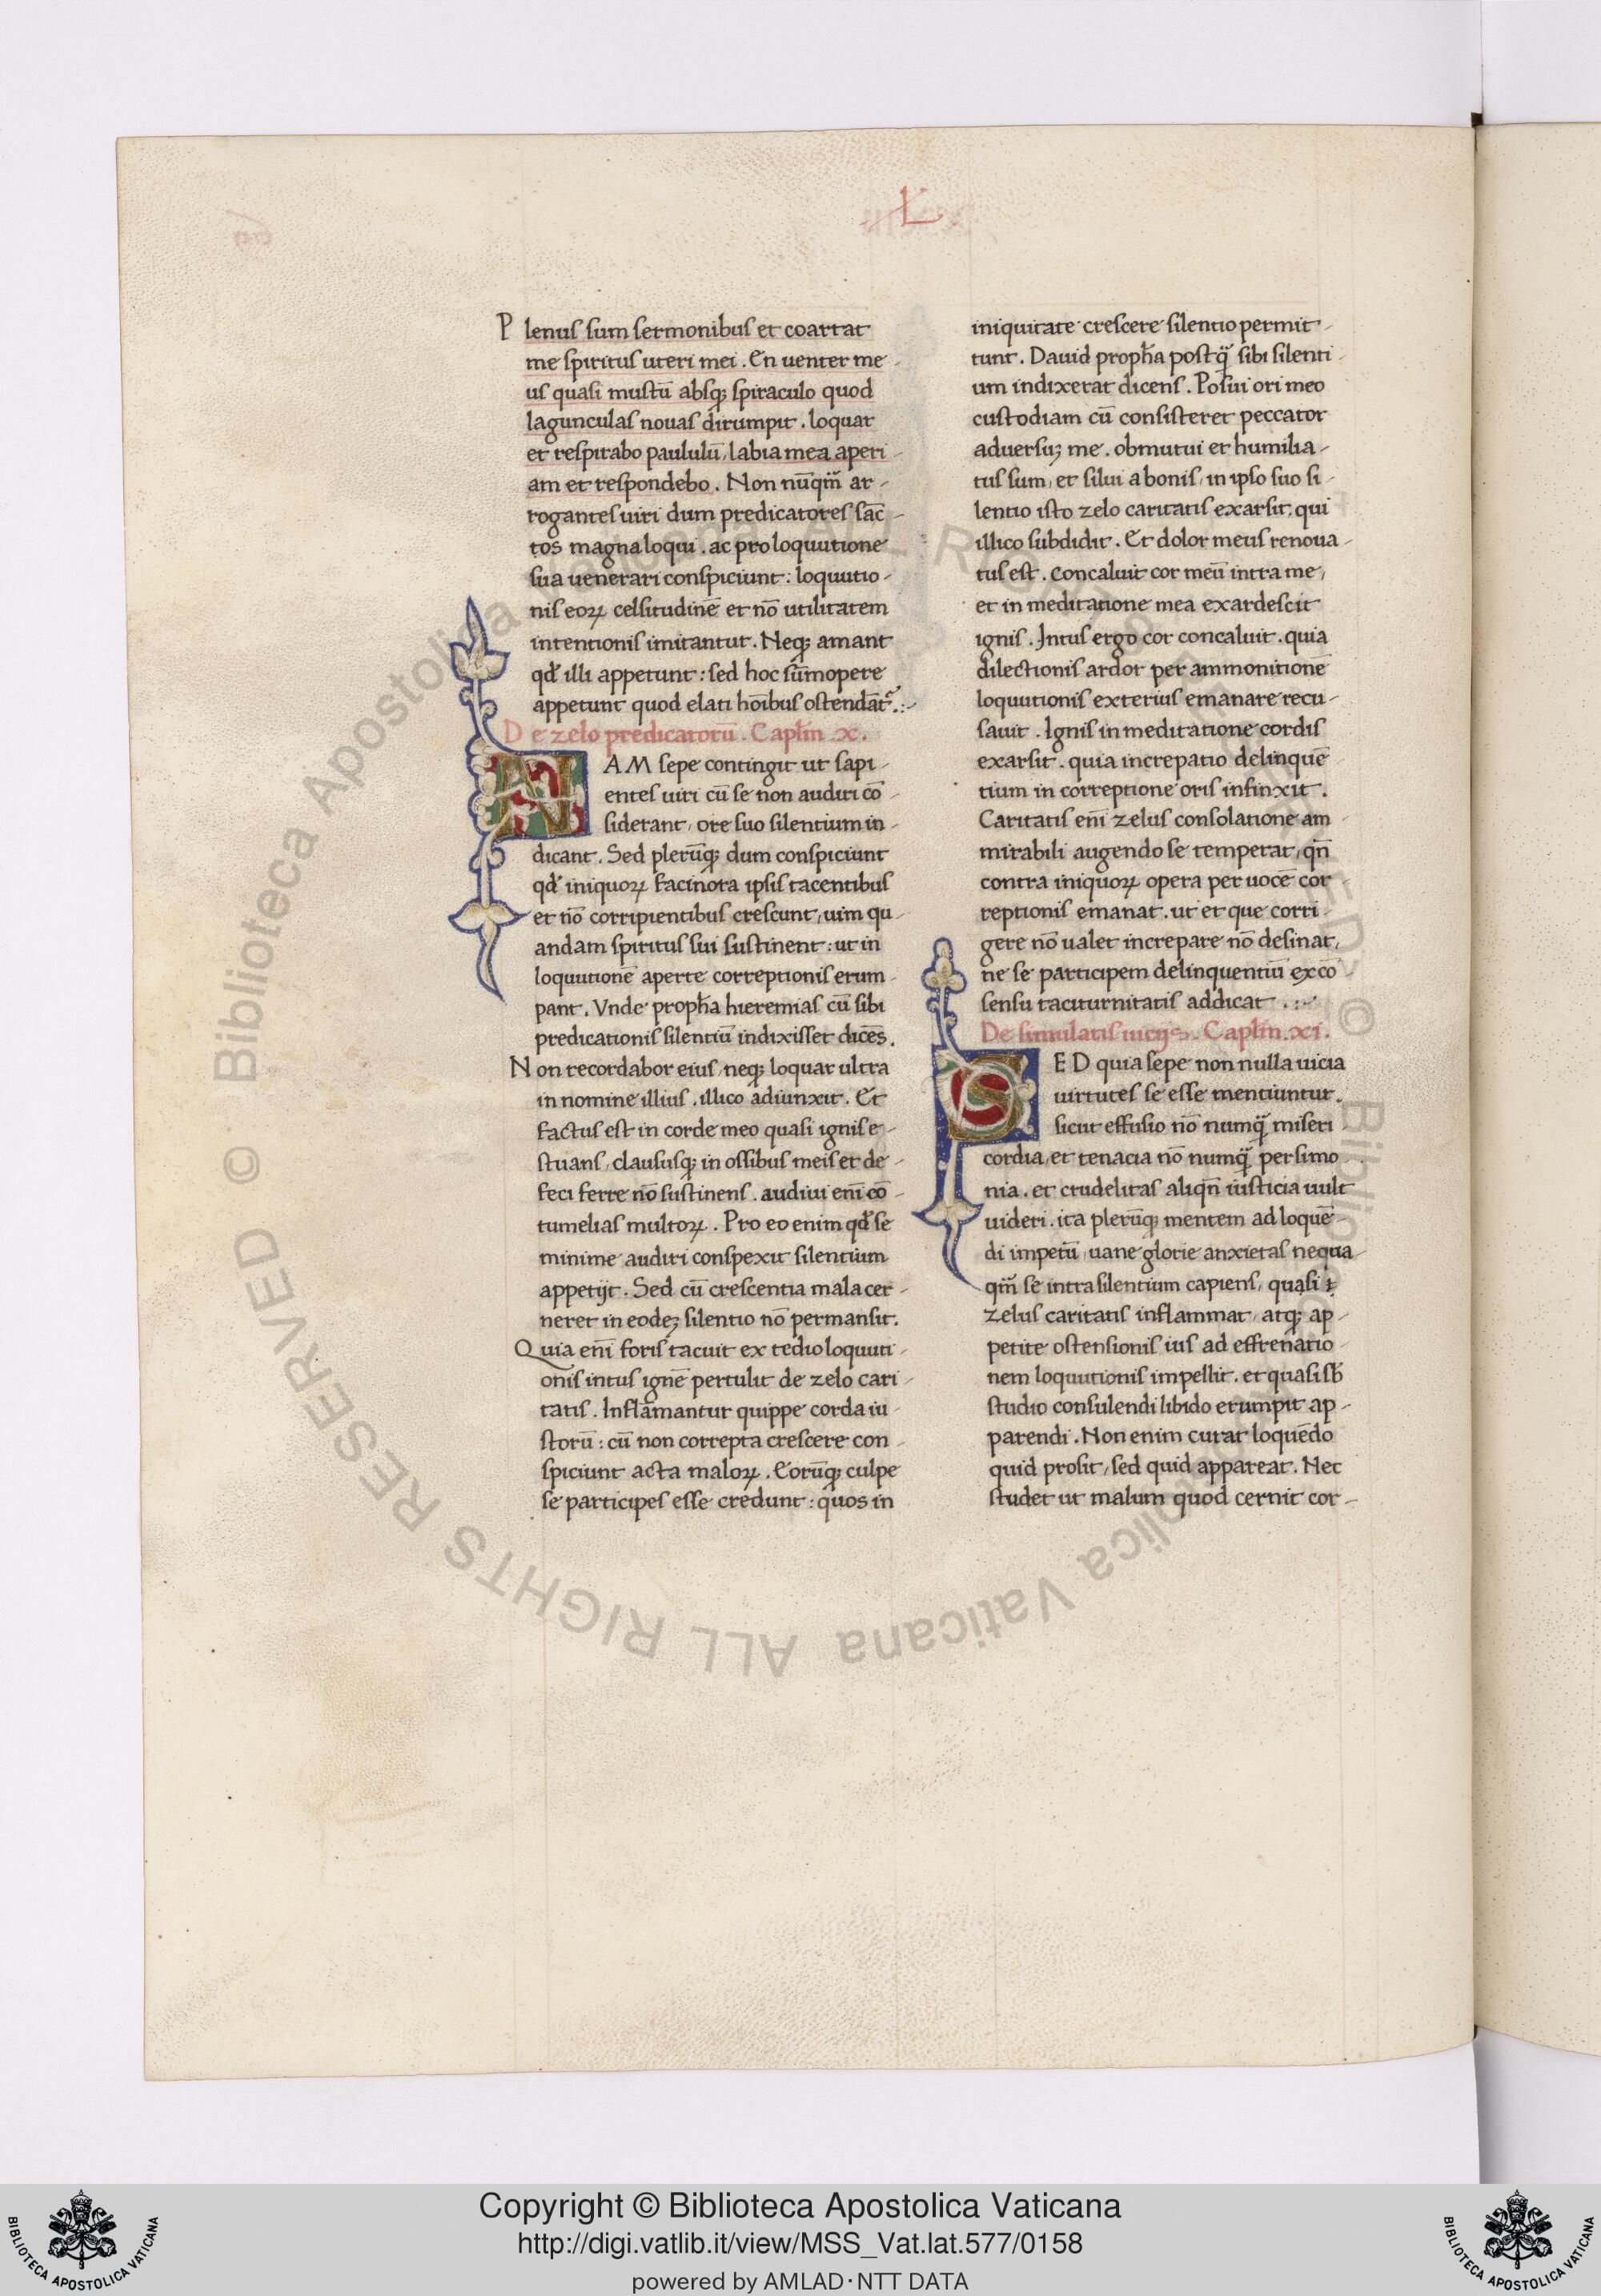 L
Plenus sum sermonibus et coartat
me spiritus uteri mei. En uenter me
us quasi mustū absq; spiraculo quod
lagunculas nouas dirumpit. loquar
et respirabo paululū, labia mea aperi
am et respondebo. Non nūqm̄ ar
rogantes uiri dum predicatores sāc
tos magna loqui. ac pro loquutione
sua uenerari conspiciunt: loquutio
nis eoꝝ celsitudinē et nō utilitatem
intentionis imitantur. Neq; amant
qd̓ illi appetunt: sed hoc sūmopere
appetunt quod elati hoībus ostendāt᷑.
De zelo predicatorū. Capl̄m .x.
NAM sepe contingit ut sapi
entes uiri cū se non audiri cō
siderant, ore suo silentium in
dicant. Sed plerūq; dum conspiciunt
qd̓ iniquoꝝ facinora ipsis tacentibus
et nō corripientibus crescunt, uim qu
andam spiritus sui sustinent: ut in
loquutionē aperte correptionis erum
pant. Vnde proph̄a hieremias cū sibi
predicationis silentiū indixisset dicēs.
Non recordabor eius, neq; loquar ultra
in nomine illius. illico adiunxit. Et
factus est in corde meo quasi ignis e
stuans, claususq; in ossibus meis et de
feci ferre nō sustinens. audiui enī cō
tumelias multoꝝ. Pro eo enim qd̓ se
minime audiri conspexit silentium
appetijt. Sed cū crescentia mala cer
neret in eodeȝ silentio nō permansit.
Quia enī foris tacuit ex tedio loquuti
onis intus ignē pertulit de zelo cari
tatis. Inflāmantur quippe corda iu
storū: cū non correpta crescere con
spiciunt acta maloꝝ. Eorūq; culpe
se participes esse credunt: quos in
iniquitate crescere silentio permit
tunt. Dauid proph̄a postq̄ sibi silenti
um indixerat dicens. Posui ori meo
custodiam cū consisteret peccator
aduersuȝ me. obmutui et humilia
tus sum, et silui a bonis, in ipso suo si
lentio isto zelo caritatis exarsit, qui
illico subdidit. Et dolor meus renoua
tus est. concaluit cor meū intra me,
et in meditatione mea exardescit
ignis. Intus ergo cor concaluit. quia
dilectionis ardor per ammonitionē
loquutionis exterius emanare recu
sauit. Ignis in meditatione cordis
exarsit. quia increpatio delinquē
tium in correptione oris infinxit.
Caritatis enī zelus consolatione am
mirabili augendo se temperat, qn̄
contra iniquoꝝ opera per uocē cor
reptionis emanat. ut et que corri
gere nō ualet increpare nō desinat,
ne se participem delinquentiū ex cō
sensu taciturnitatis addicat.
De simulatis uicijs. Capl̄m .xi.
SED quia sepe non nulla uicia
uirtutes se esse mentiuntur.
sicut effusio nō numq̄ miseri
cordia, et tenacia nō numq̄ persimo
nia. et crudelitas aliqn̄ iusticia uult
uideri. ita plerūq; mentem ad loquē
di impetū, uane glorie anxietas nequa
qm̄ se intra silentium capiens, quasi ī
zelus caritatis inflammat, atq; ap
petite ostensionis ius ad effrenatio
nem loquutionis impellit. et quasi sb̄
studio consulendi libido erumpit ap
parendi. Non enim curat loquēdo
quid prosit, sed quid appareat. Nec
studet ut malum quod cernit cor
Copyright © Biblioteca Apostolica Vaticana
http://digi.vatlib.it/view/MSS_Vat.lat.577/0158
powered by AMLAD·NTT DATA
BIBLIOTECA APOSTOLICA VATICANA
BIBLIOTECA APOSTOLICA VATICANA
© Biblioteca Apostolica Vaticana ALL RIGHTS RESERVED